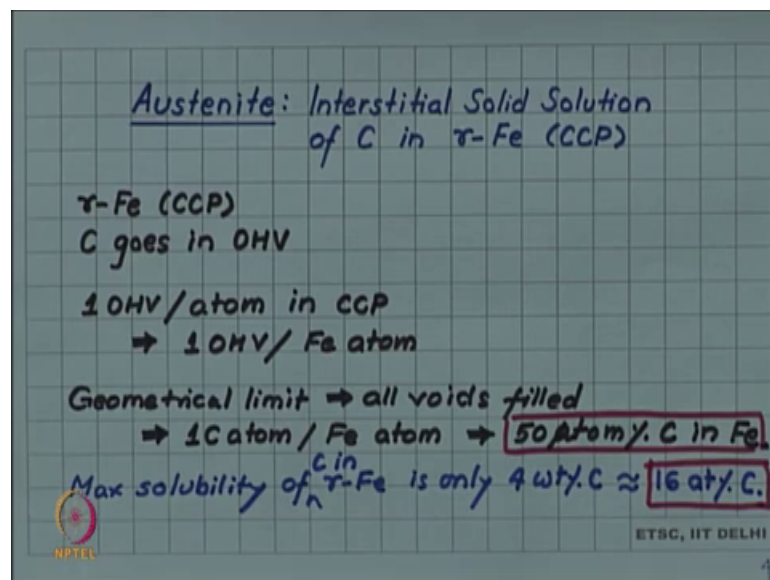 Austenite: Interstitial Solid Solution
of C in γ-Fe (CCP)
γ-Fe (CCP)
C goes in OHV
1 OHV/atom in CCP
➡ 1 OHV/ Fe atom
Geometrical limit ➡ all voids filled
➡ 1C atom / Fe atom ➡ 50 atom%. C in Fe.
Max solubility of C in γ-Fe is only 4 wt%. C ≈ 16 at%. C.
NPTEL
ETSC, IIT DELHI